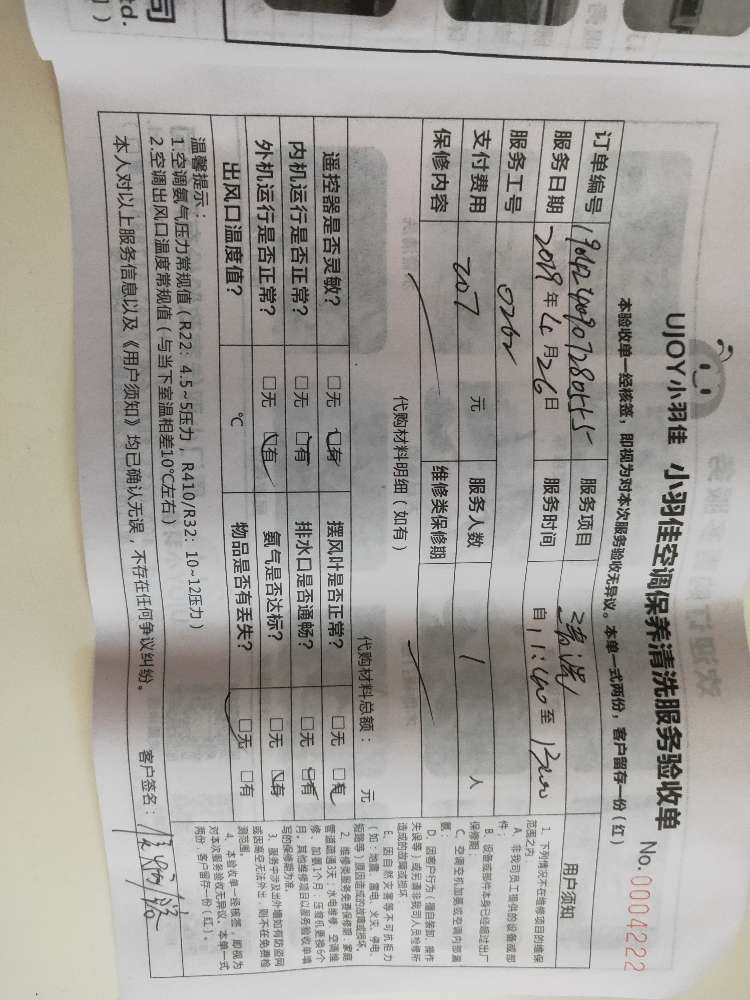 司
td.
UJOY小羽佳 小羽佳空调保养清洗服务验收单
No.0004222
本验收单一经核签，即视为对本次服务验收无异议。本单一式两份，客户留存一份（红）
订单编号
服务项目 清洗
服务日期 2019年4月26日 服务时间 自11:40至13:00
服务工号 0262
支付费用 207元 服务人数 1人
保修内容 维修类保修期
代购材料明细（如有）
代购材料总额： 元
遥控器是否灵敏? □无 □有 摆风叶是否正常? □无 □有
内机运行是否正常? □无 □有 排水口是否通畅? □无 □有
外机运行是否正常? □无 □有 氨气是否达标? □无 □有
出风口温度值? ℃ 物品是否有丢失? □无 □有
温馨提示：
1.空调氨气压力常规值（R22：4.5~5压力，R410/R32：10~12压力）
2.空调出风口温度常规值（与当下室温相差10℃左右）
本人对以上服务信息以及《用户须知》均已确认无误，不存在任何争议纠纷。 客户签名：
用户须知
1、下列情况不在维修项目的维保
范围之内：
A、非我司员工提供的设备或部
件；
B、设备或部件本身已经超过出厂
保修期；
C、空调空机加氨或空调内部漏
氨；
D、因客户行为（擅自装卸，操作
失误等）或另请非我司人员检修所
造成的故障或损坏
E、因自然灾害等不可抗拒力
（如：地震、雷电、火灾、停电、
短路等）原因造成的故障或损坏。
2、维修类服务免费保修期：家庭
管道疏通5天；水电维修、空调维
修、加氨1个月；压缩机更换6个
月，其他维修项目以服务验收单填
写的保修期为准。
3、服务中涉及出外墙如有防盗网
或因高空无法外出，则不在免费检
测范围。
4、本验收单一经核签，即视为
对本次服务验收无异议。本单一式
两份，客户留存一份（红）。